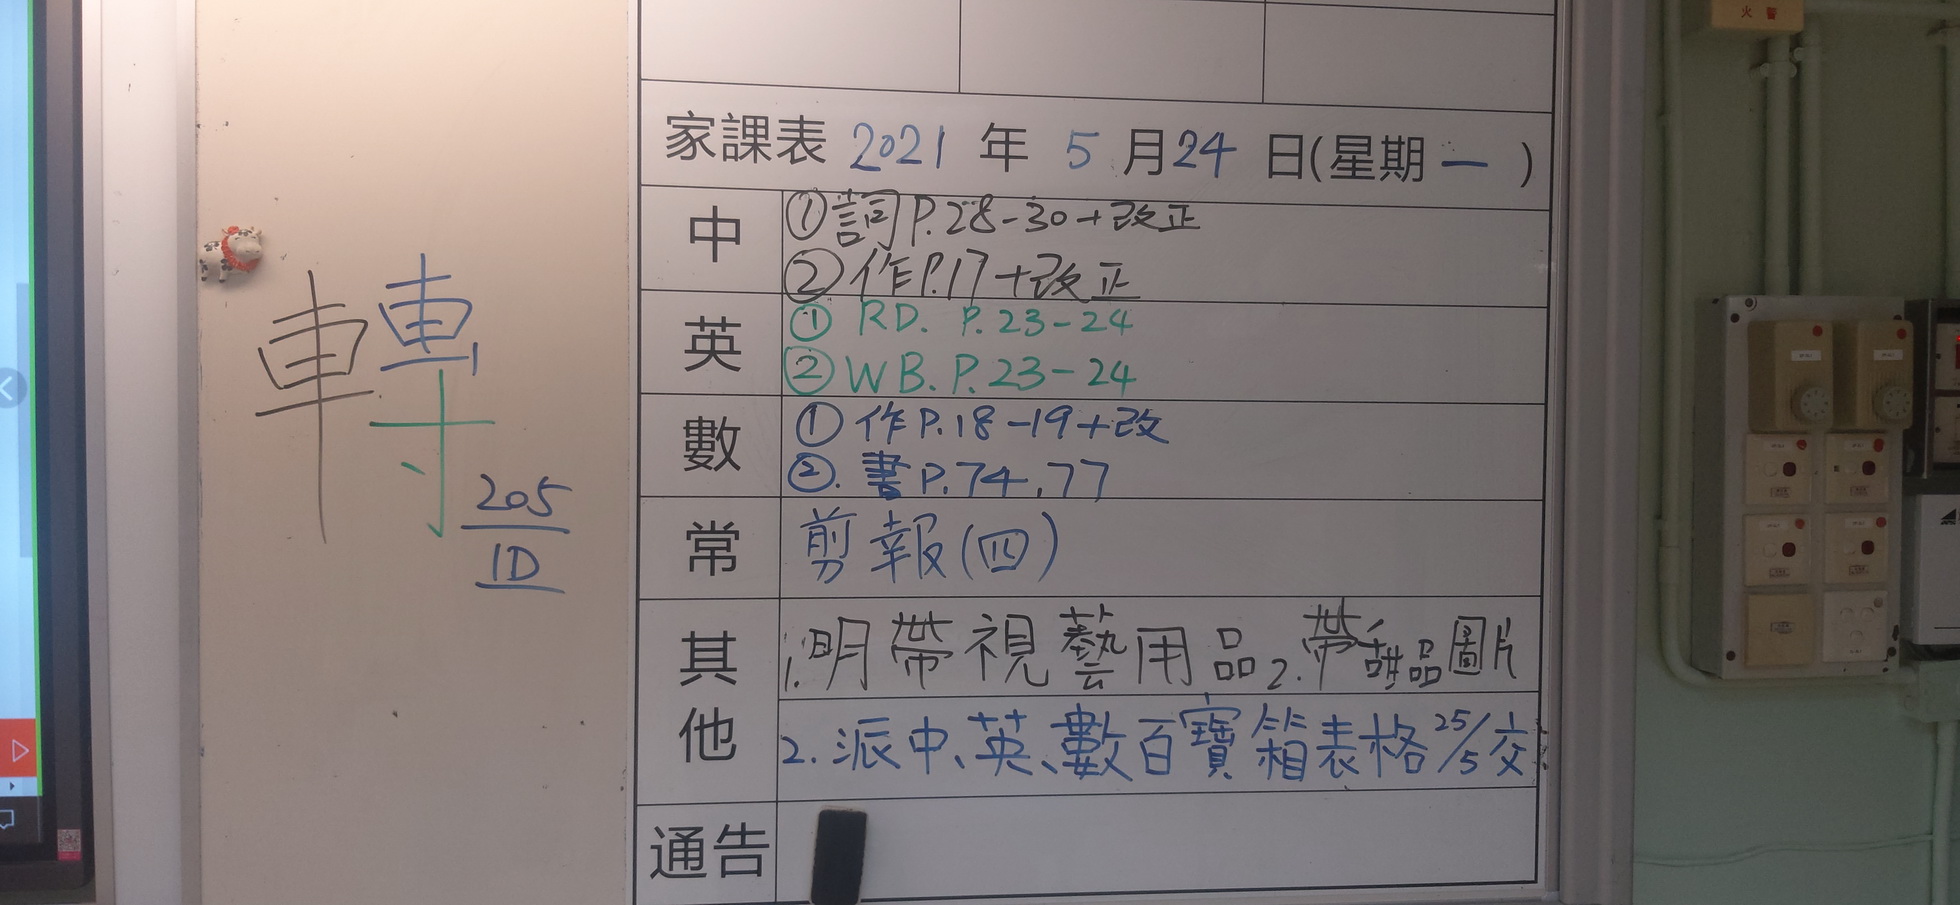 火警
轉
205
1D
家課表 2021 年 5 月 24 日(星期 一 )
中
①詞P.28-30+改正
②作P.17+改正
英
① RD. P.23-24
② WB. P.23-24
數
① 作P.18-19+改
②. 書P.74,77
常
剪報(四)
其他
1.明帶視藝用品 2.帶甜品圖片
2.派中、英、數百寶箱表格25/5交
通告